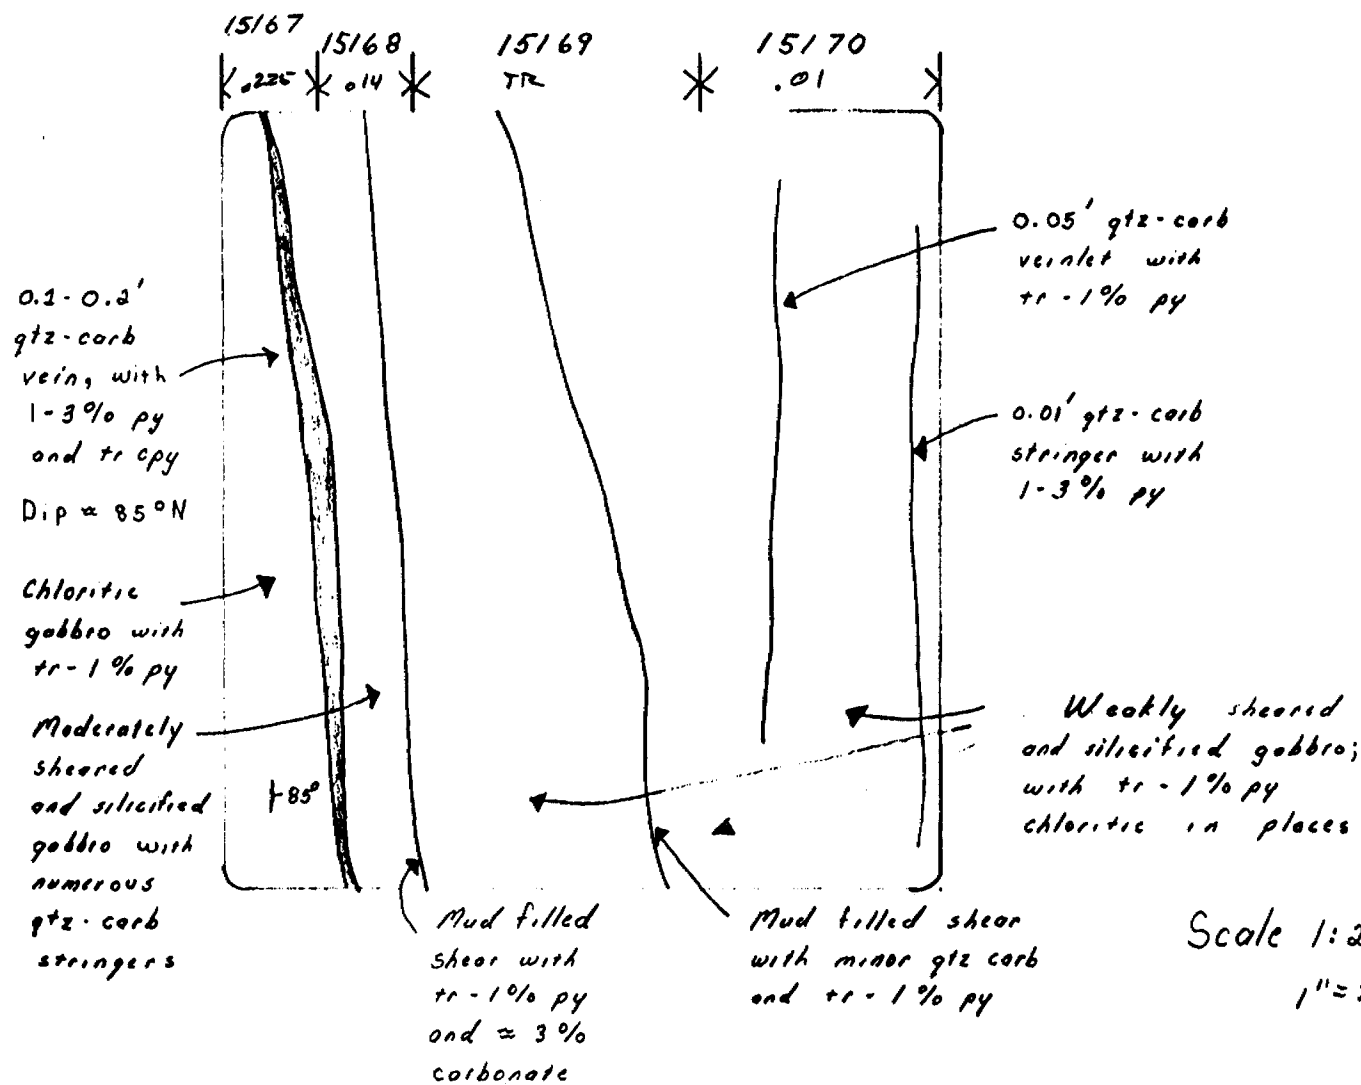 15167
15168
15169
15170
.225
.14
TR
.01
0.1-0.2'
qtz-carb
vein, with
1-3% py
and tr cpy
Dip ≈ 85°N
Chloritic
gabbro with
tr-1% py
Moderately
sheared
and silicified
gabbro with
numerous
qtz-carb
stringers
85°
0.05' qtz-carb
veinlet with
tr-1% py
0.01' qtz-carb
stringer with
1-3% py
Weakly sheared
and silicified gabbro;
with tr-1% py
chloritic in places
Mud filled
shear with
tr-1% py
and ≈ 3%
carbonate
Mud filled shear
with minor qtz carb
and tr-1% py
Scale 1:2
1"=